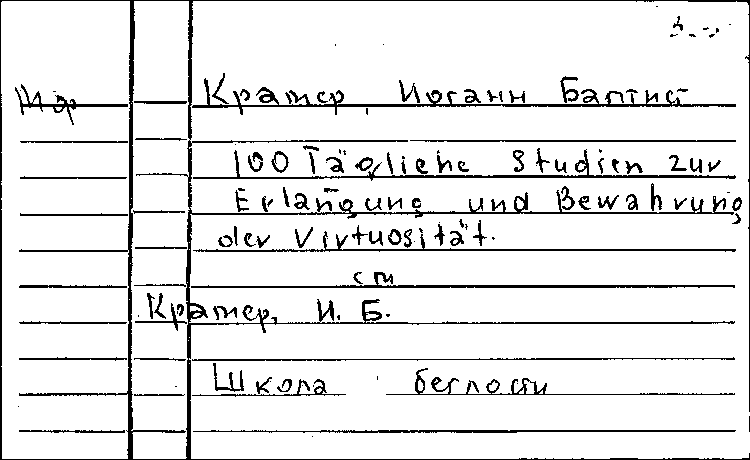 Крамер, Иоганн Баптист
100 Tägliche Studien zur
Erlangung und Bewahrung
der Virtuosität.
см
Крамер, И. Б.
Школа беглости